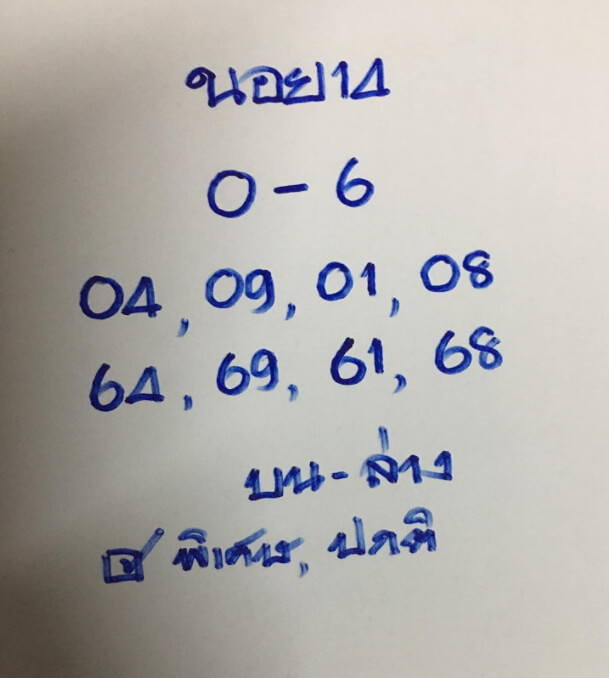 นอย14
0-6
04, 09, 01, 08
64, 69, 61, 68
บน-ล่าง
พิเศษ, ปกติ